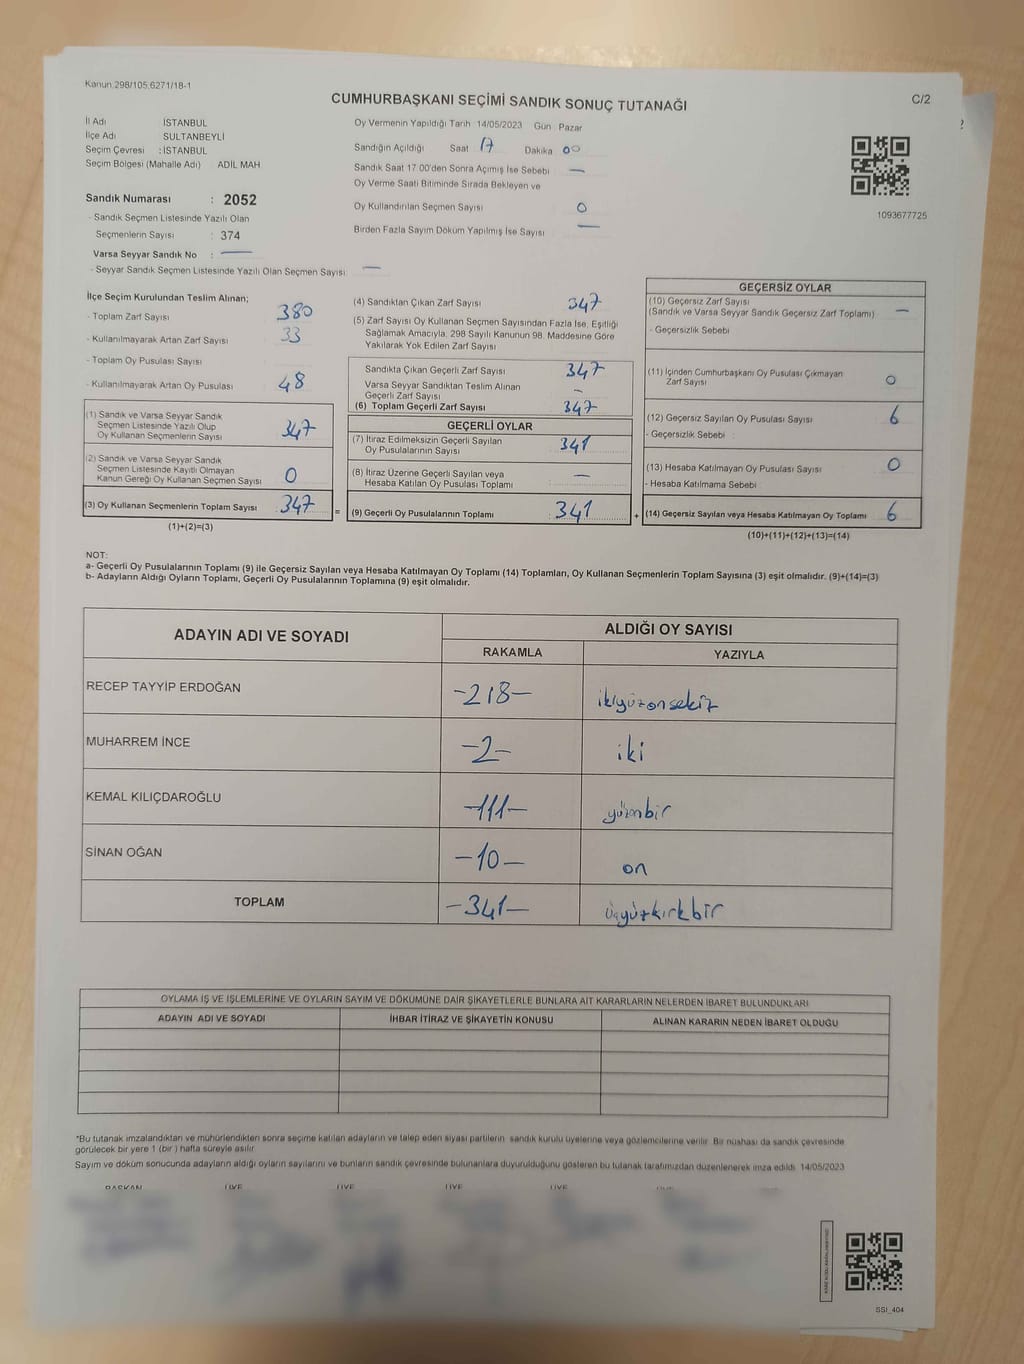 Kanun.298/105,6271/18-1
CUMHURBAŞKANI SEÇİMİ SANDIK SONUÇ TUTANAĞI
C/2
İl Adı İSTANBUL
İlçe Adı SULTANBEYLİ
Seçim Çevresi : İSTANBUL
Seçim Bölgesi (Mahalle Adı) ADİL MAH
Oy Vermenin Yapıldığı Tarih 14/05/2023 Gün Pazar
Sandığın Açıldığı Saat 17 Dakika 00
Sandık Saat 17.00'den Sonra Açılmış İse Sebebi —
Oy Verme Saati Bitiminde Sırada Bekleyen ve
Oy Kullandırılan Seçmen Sayısı 0
Birden Fazla Sayım Döküm Yapılmış İse Sayısı —
1093677725
Sandık Numarası : 2052
- Sandık Seçmen Listesinde Yazılı Olan
Seçmenlerin Sayısı : 374
Varsa Seyyar Sandık No : —
- Seyyar Sandık Seçmen Listesinde Yazılı Olan Seçmen Sayısı: —
İlçe Seçim Kurulundan Teslim Alınan;
- Toplam Zarf Sayısı 380
- Kullanılmayarak Artan Zarf Sayısı 33
- Toplam Oy Pusulası Sayısı
- Kullanılmayarak Artan Oy Pusulası 48
(1) Sandık ve Varsa Seyyar Sandık
Seçmen Listesinde Yazılı Olup
Oy Kullanan Seçmenlerin Sayısı 347
(2) Sandık ve Varsa Seyyar Sandık
Seçmen Listesinde Kayıtlı Olmayan
Kanun Gereği Oy Kullanan Seçmen Sayısı 0
(3) Oy Kullanan Seçmenlerin Toplam Sayısı : 347
(1)+(2)=(3)
=
(4) Sandıktan Çıkan Zarf Sayısı 347
(5) Zarf Sayısı Oy Kullanan Seçmen Sayısından Fazla İse, Eşitliği
Sağlamak Amacıyla, 298 Sayılı Kanunun 98. Maddesine Göre
Yakılarak Yok Edilen Zarf Sayısı
Sandıkta Çıkan Geçerli Zarf Sayısı 347
Varsa Seyyar Sandıktan Teslim Alınan
Geçerli Zarf Sayısı —
(6) Toplam Geçerli Zarf Sayısı 347
GEÇERLİ OYLAR
(7) İtiraz Edilmeksizin Geçerli Sayılan
Oy Pusulalarının Sayısı 341
(8) İtiraz Üzerine Geçerli Sayılan veya
Hesaba Katılan Oy Pusulası Toplamı —
(9) Geçerli Oy Pusulalarının Toplamı : 341
+
GEÇERSİZ OYLAR
(10) Geçersiz Zarf Sayısı
(Sandık ve Varsa Seyyar Sandık Geçersiz Zarf Toplamı) —
- Geçersizlik Sebebi
(11) İçinden Cumhurbaşkanı Oy Pusulası Çıkmayan
Zarf Sayısı 0
(12) Geçersiz Sayılan Oy Pusulası Sayısı 6
- Geçersizlik Sebebi :
(13) Hesaba Katılmayan Oy Pusulası Sayısı 0
- Hesaba Katılmama Sebebi
(14) Geçersiz Sayılan veya Hesaba Katılmayan Oy Toplamı 6
(10)+(11)+(12)+(13)=(14)
NOT:
a- Geçerli Oy Pusulalarının Toplamı (9) ile Geçersiz Sayılan veya Hesaba Katılmayan Oy Toplamı (14) Toplamları, Oy Kullanan Seçmenlerin Toplam Sayısına (3) eşit olmalıdır. (9)+(14)=(3)
b- Adayların Aldığı Oyların Toplamı, Geçerli Oy Pusulalarının Toplamına (9) eşit olmalıdır.
ADAYIN ADI VE SOYADI
ALDIĞI OY SAYISI
RAKAMLA YAZIYLA
RECEP TAYYİP ERDOĞAN -218- ikiyüzonsekiz
MUHARREM İNCE -2- iki
KEMAL KILIÇDAROĞLU -111- yüzonbir
SİNAN OĞAN -10- on
TOPLAM -341- üçyüzkırkbir
OYLAMA İŞ VE İŞLEMLERİNE VE OYLARIN SAYIM VE DÖKÜMÜNE DAİR ŞİKAYETLERLE BUNLARA AİT KARARLARIN NELERDEN İBARET BULUNDUKLARI
ADAYIN ADI VE SOYADI İHBAR İTİRAZ VE ŞİKAYETİN KONUSU ALINAN KARARIN NEDEN İBARET OLDUĞU
*Bu tutanak imzalandıktan ve mühürlendikten sonra seçime katılan adayların ve talep eden siyasi partilerin sandık kurulu üyelerine veya gözlemcilerine verilir. Bir nüshası da sandık çevresinde
görülecek bir yere 1 (bir ) hafta süreyle asılır.
Sayım ve döküm sonucunda adayların aldığı oyların sayılarını ve bunların sandık çevresinde bulunanlara duyurulduğunu gösteren bu tutanak tarafımızdan düzenlenerek imza edildi. 14/05/2023
BAŞKAN ÜYE ÜYE ÜYE ÜYE
SSI_404